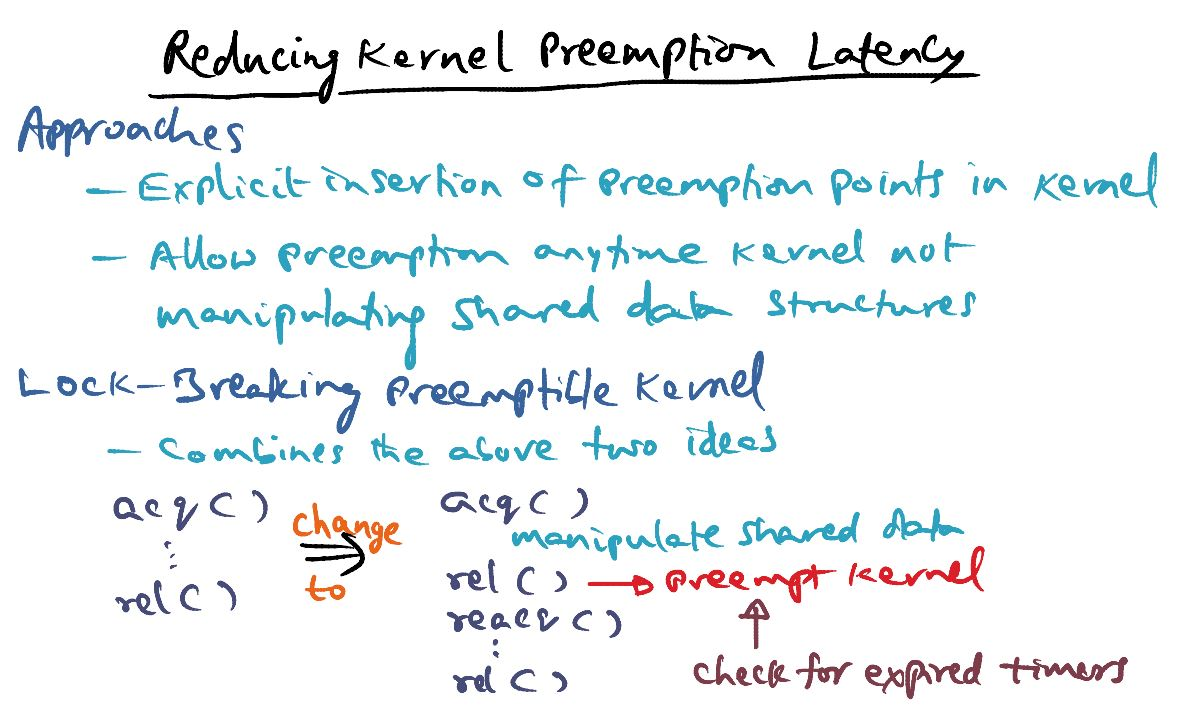 Reducing Kernel Preemption Latency
Approaches
- Explicit insertion of preemption points in kernel
- Allow preemption anytime kernel not
manipulating shared data structures
Lock-Breaking Preemptible Kernel
- Combines the above two ideas
acq()
⋮
rel()
change
⇒
to
acq()
manipulate shared data
rel() → preempt kernel
reacq()
⋮
rel()
check for expired timers